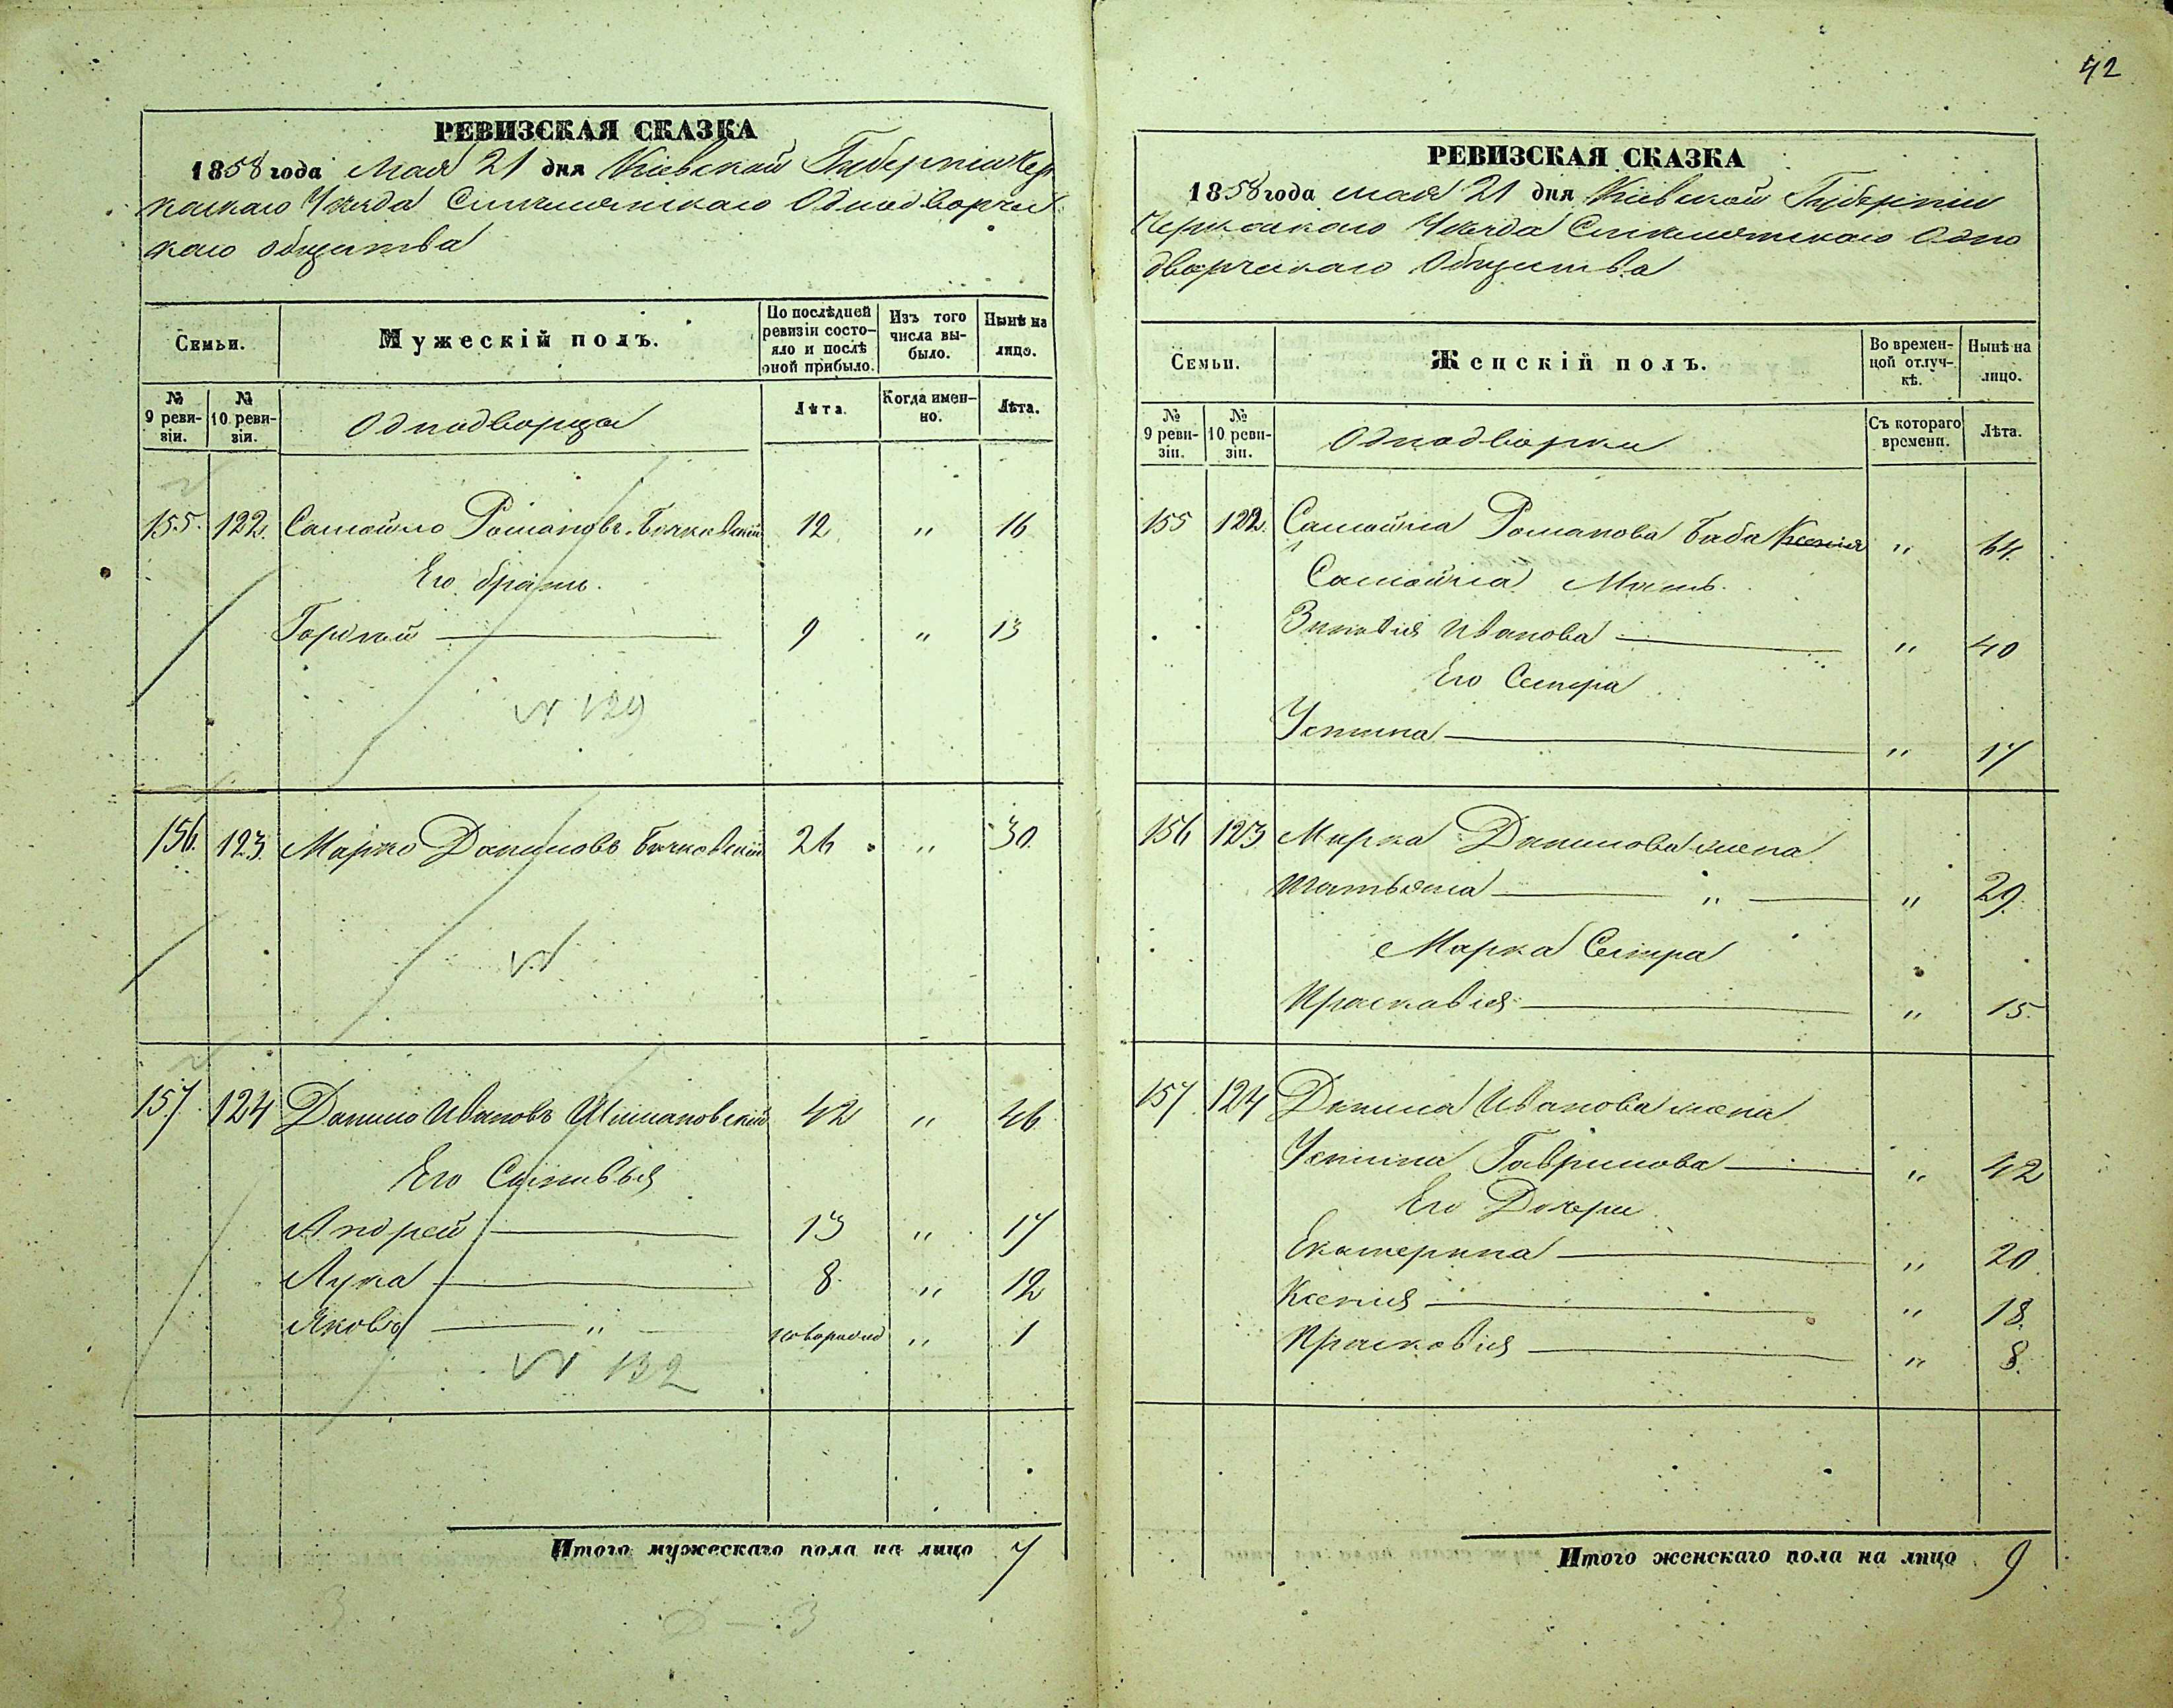 42
РЕВИЗСКАЯ СКАЗКА
1858 года Мая 21 дня Кіевской Губерніи Чер
каскаго Уезда Смилянскаго Однодворчес
каго общества
Семьи.
Мужескій полъ.
По послѣдней ревизіи состояло и послѣ оной прибыло.
Изъ того числа выбыло.
Нынѣ на лицо.
№ 9 ревизіи.
№ 10 ревизіи.
Однодворцы
Лѣта.
Когда именно.
Лѣта.
155. 122. Самойло Романовъ Бачковскій 12 " 16
Его братъ.
Гордѣй 9 " 13
№ 129
156. 123. Марко Даниловъ Бачковскій 26 " 30.
№
157. 124 Данило Ивановъ 42 " 46
Его Сыновья
Андрей 13 " 17
Лука 8. " 12
Яковъ " новорожд " 1
№ 132
Итого мужескаго пола на лицо 7
3
РЕВИЗСКАЯ СКАЗКА
1858 года мая 21 дня Кіевской Губерніи
Черкаскаго Уезда Смилянскаго Одно
дворческаго Общества
Семьи.
Женскій полъ.
Во временной отлучкѣ.
Нынѣ на лицо.
№ 9 ревизіи.
№ 10 ревизіи.
Однодворки
Съ котораго времени.
Лѣта.
155 122. Самойла Романова баба Ксенія " 64.
Самойла Мать.
Зиновія Иванова " 40
Его Сестра
Устина " 17
156 123 Марка Данилова жена
Татьяна " " 29.
Марка Сестра
Прасковія " 15.
157. 124 Данила Иванова жена
Устина Гаврилова " 42
Его Дочери
Екатерина " 20
Ксенія " 18.
Прасковія " 8.
Итого женскаго пола на лицо 9